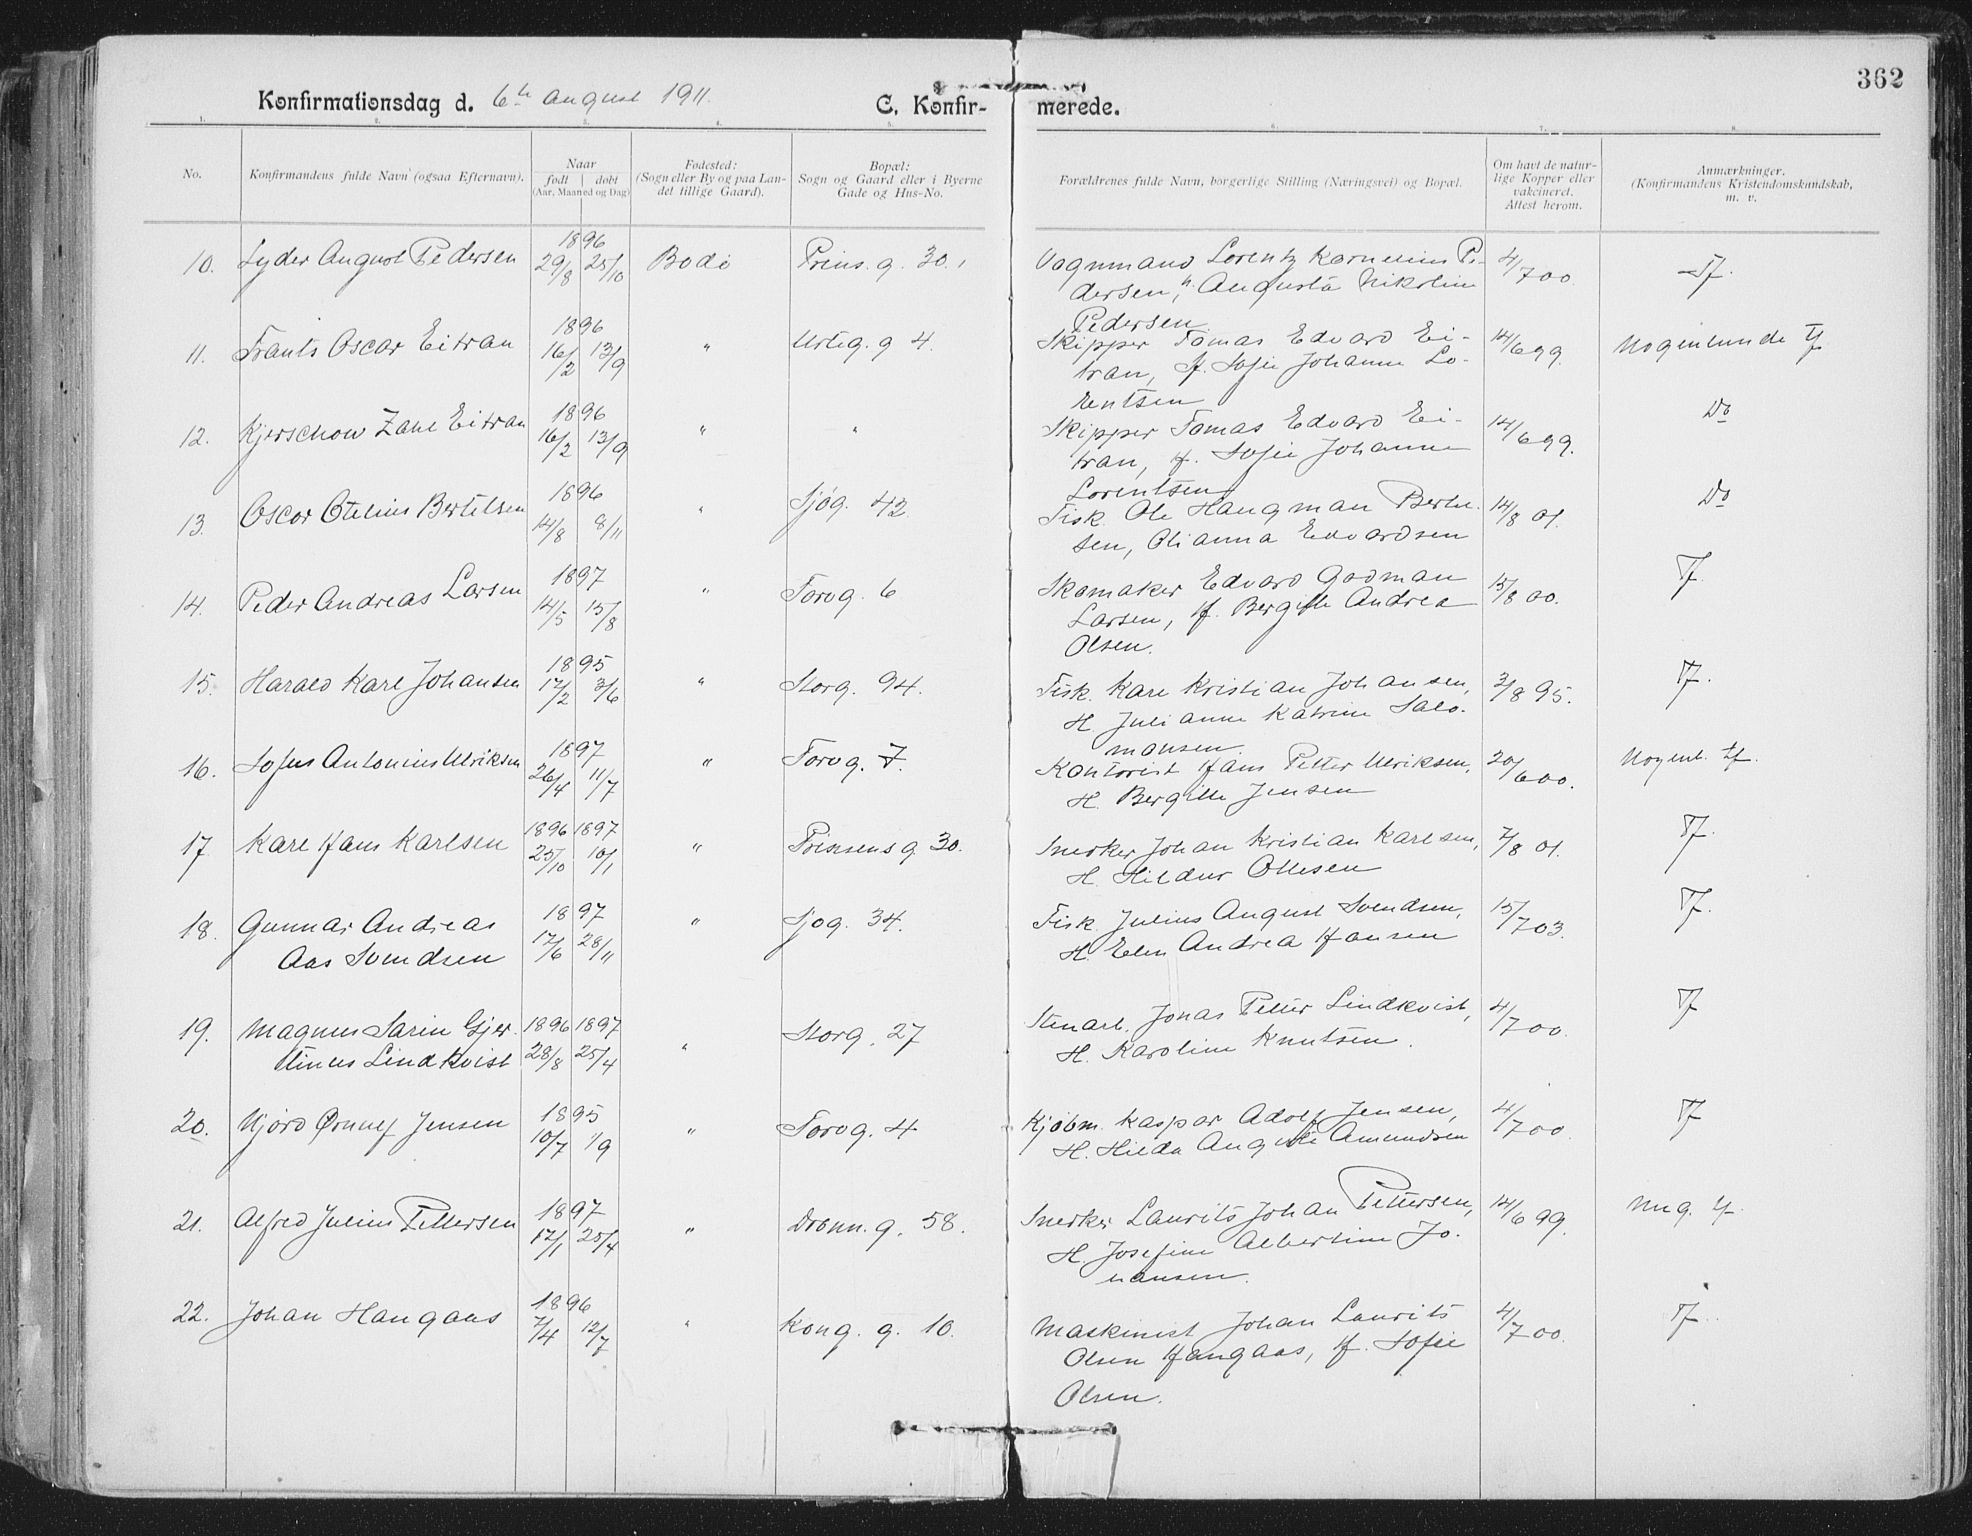 362
Konfirmationsdag d. 6te august 1911.
C. Konfirmerede.
1. 2. 3. 4. 5. 6. 7. 8.
No.
Konfirmandens fulde Navn (ogsaa Efternavn).
Naar
født | døbt
(Aar, Maaned og Dag)
Fødested:
(Sogn eller By og paa Landet tillige Gaard).
Bopæl:
Sogn og Gaard eller i Byerne
Gade og Hus-No.
Forældrenes fulde Navn, borgerlige Stilling (Næringsvei) og Bopæl.
Om havt de naturlige Kopper eller
vakcineret.
Attest herom.
Anmærkninger.
(Konfirmandens Kristendomskundskab,
m. v.
10. Lyder August Pedersen 1896 29/8 25/10 Bodø Prins. g. 30. Vognmand Lorentz Kornelius Pe- 4/7 00. Tf.
dersen, Augusta Nikoline
Pedersen
11. Frants Oscar Eitran 1896 16/2 13/9 " Urteg. g 4. Skipper Tomas Edvard Ei- 14/6 99. Nogenlunde tf
tran, H. Sofie Johanne Lo-
rentsen
12. Kjerschow Zahl Eitran 1896 16/2 13/9 " " Skipper Tomas Edvard Ei- 14/6 99. Do
tran, H. Sofie Johanne
Lorentsen
13. Oscar Otelius Bertelsen 1896 14/8 8/11 " Sjøg. 42. Fisk. Ole Hangman Bertel- 14/8 01. Do
sen, Olianna Edvardsen
14. Peder Andreas Larsen 1897 14/5 15/8 " Torvg. 6 Skomaker Edvard Godman 15/8 00. Tf.
Larsen, H. Bergitte Andrea
Olsen.
15. Harald Karl Johansen 1895 17/2 3/6 " Storg. 94. Fisk. Karl Kristian Johansen, 3/8 95. Tf.
H. Julianne Katrine Salo-
monsen.
16. Sofus Antonius Ulriksen 1897 26/4 11/7 " Torvg. 7. Kontorist Hans Petter Ulriksen, 20/6 00. Nogenl. tf.
H. Bergitte Jensen
17 Karl Hans Karlsen 1896 1897 25/10 10/1 " Prinsens g. 30. Snedker Johan Kristian Karlsen, 7/8 01. Tf.
H. Hildur Ottesen
18. Gunnar Andreas 1897 17/6 28/11 " Sjøg. 34. Fisk. Julius August Svendsen, 15/7 03. Tf.
Aas Svendsen H. Elen Andrea Hansen
19. Magnus Sarin Gjer- 1896 1897 28/8 25/4 " Storg. 27 Stenarb. Jonas Petter Lindkvist, 4/7 00. Tf
tinus Lindkvist H. Karoline Knutsen.
20. Njörd Ørnulf Jensen 1895 10/7 1/9 " Torvg. 4 Kjøbm. Kaspar Adolf Jensen, 4/7 00. Tf
H. Hilda Auguste Amundsen
21. Alfred Julius Pettersen 1897 17/1 25/4 " Dronn. g. 58. Snedker Laurits Johan Pettersen, 14/6 99. Nug. tf.
H. Josefine Albertine Jo-
hansen.
22. Johan Haugaas 1896 7/4 12/7 " Kong. g. 10. Maskinist Johan Laurits 4/7 00. Tf.
Olsen Haugaas, H. Sofie
Olsen.